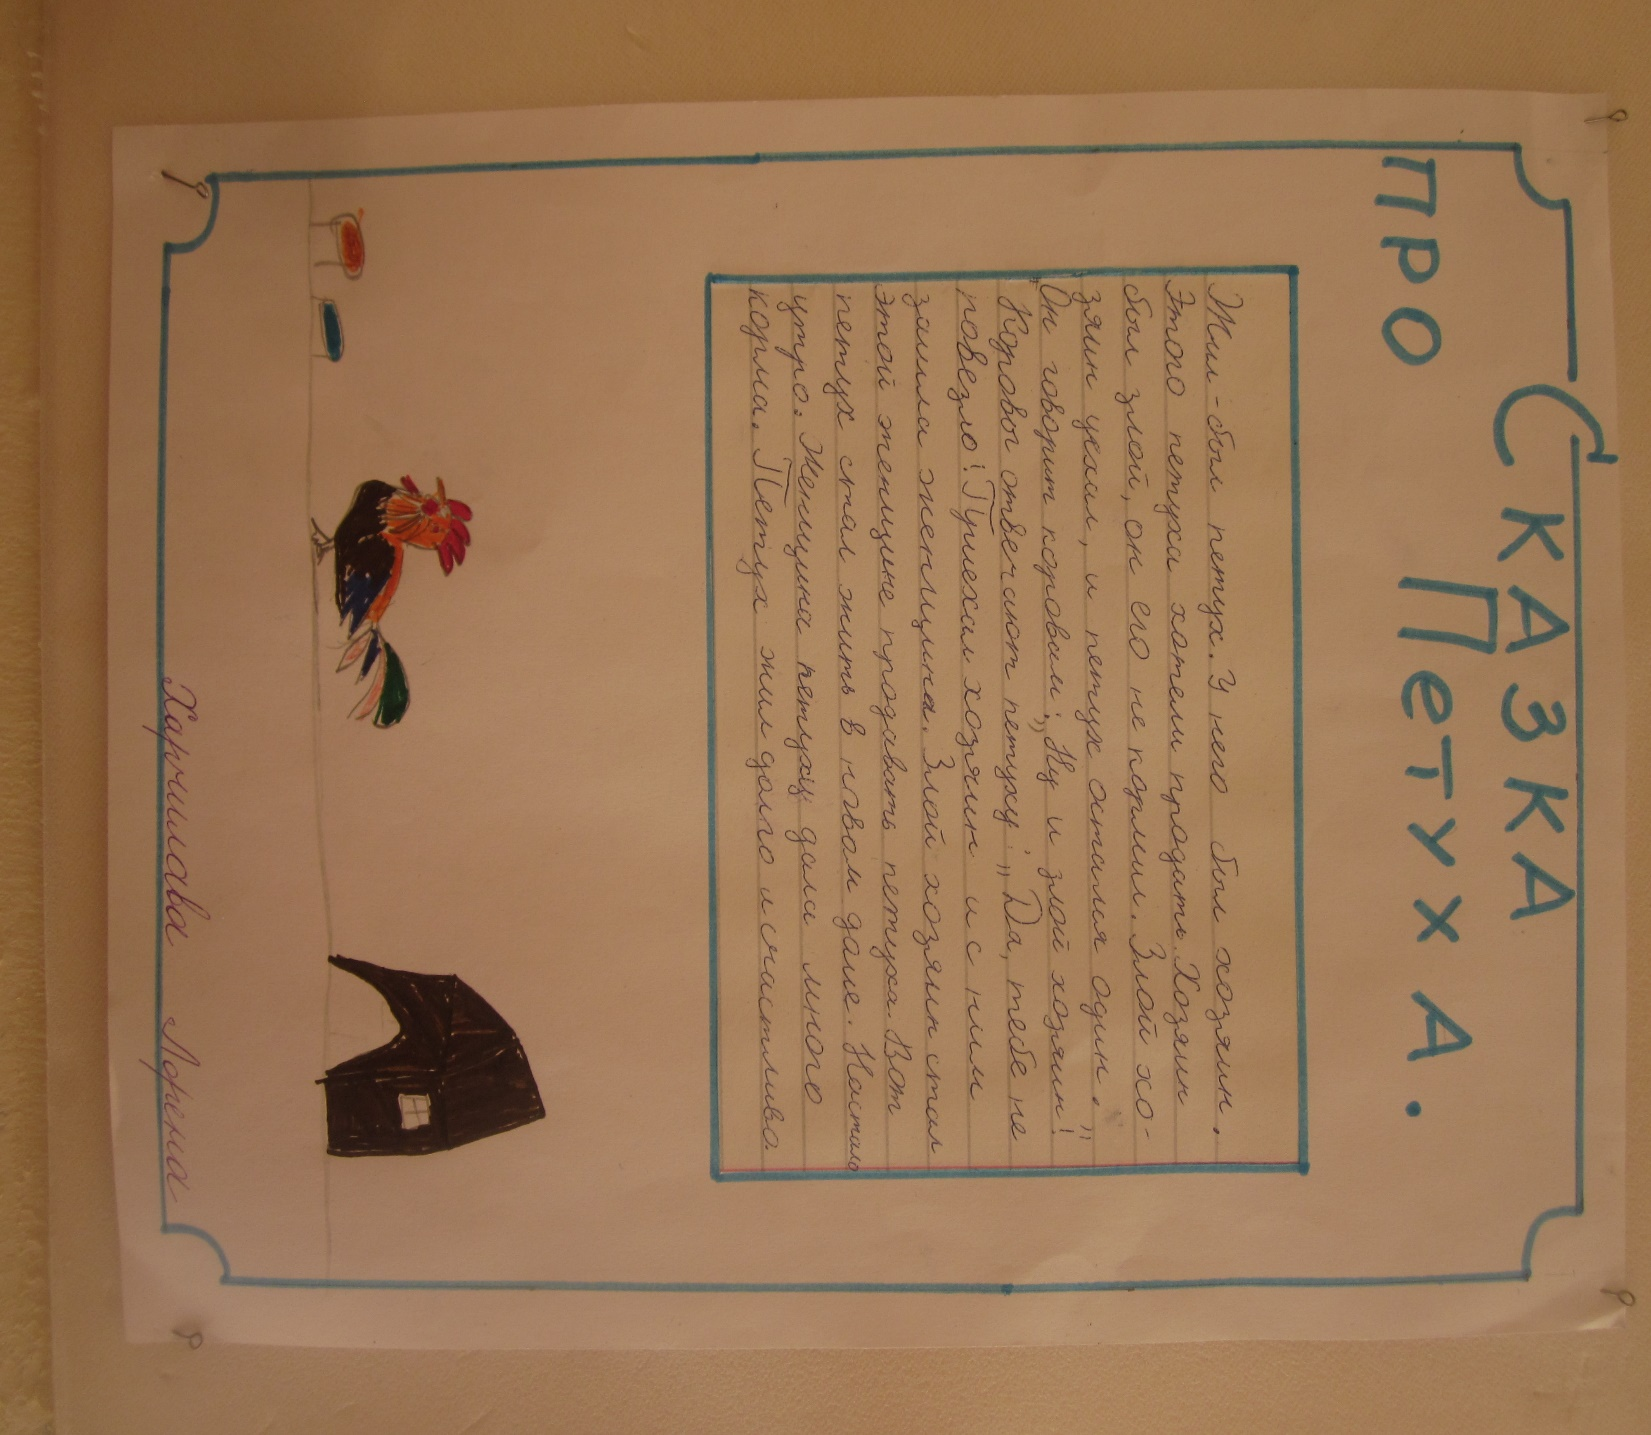 СКАЗКА
ПРО ПЕТУХА.
Жил-был петух. У него был хозяин.
Этого петуха хотели продать. Хозяин
был злой, он его не кормил. Злой хо-
зяин уехал, и петух остался один.
Он говорит коровам: „Ну и злой хозяин!"
Коровы отвечают петуху: „Да, тебе не
повезло!" Приехал хозяин и с ним
зашла женщина. Злой хозяин стал
этой женщине продавать петуха. Вот
петух стал жить в новом доме. Настало
утро. Женщина петуху дала много
корма. Петух жил долго и счастливо.
Харчилава Лофена